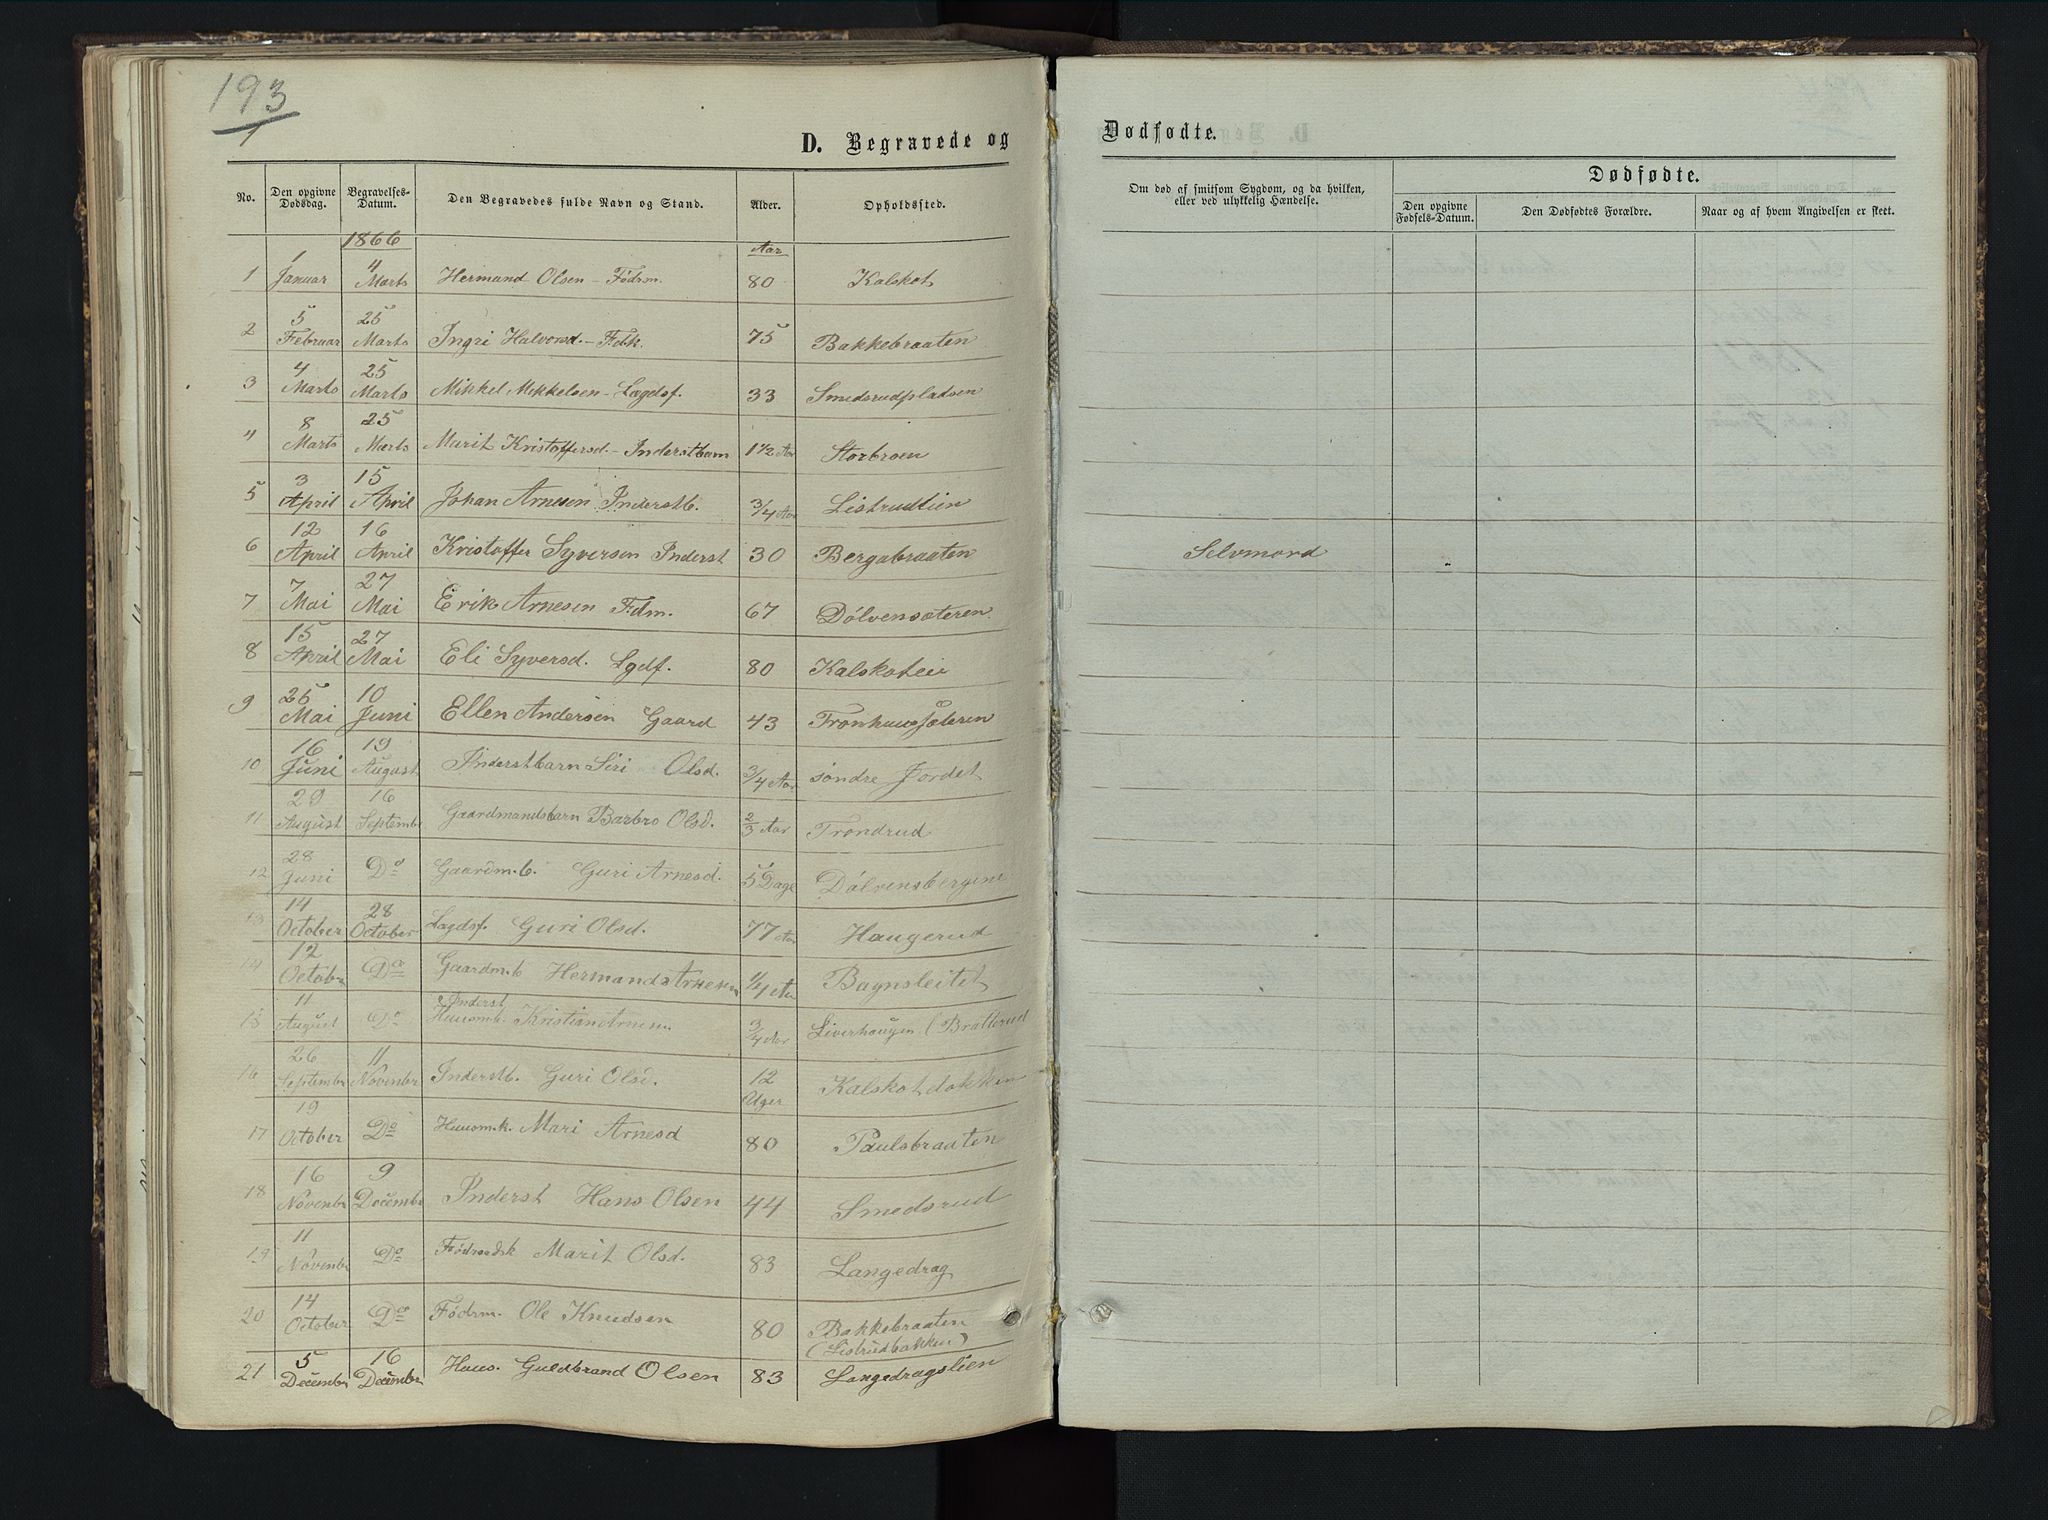 193
D. Begravede og Dødfødte.
No. Den opgivne Dødsdag. Begravelses-Datum. Den Begravedes fulde Navn og Stand. Alder. Opholdssted. Om død af smitsom Sygdom, og da hvilken, eller ved ulykkelig Hændelse. Dødfødte. Den opgivne Fødsels-Datum. Den Dødfødtes Forældre. Naar og af hvem Angivelsen er skett.
1866 Aar
1 1 Januar 4 Marts Hermand Olsen - Födrm. 80 Kalskot
2 5 Februar 25 Marts Ingri Halvorsd. - Fdk. 75 Bakkebraaten
3 4 Marts 25 Marts Mikkel Mikkelsen - Lægdsf. 33 Smedsrudpladsen
4 8 Marts 25 Marts Marit Kristoffersd. - Inderstbarn 1 1/2 Aar Storbroen
5 3 April 15 April Johan Arnesen Inderstb. 3/4 Aar Listrudlien
6 12 April 16 April Kristoffer Syversen Inderst 30 Bergabraaten Selvmord
7 7 Mai 27 Mai Erik Arnesen Fdm. 67 Dölvensæteren
8 15 April 27 Mai Eli Syversd. Lgdf. 80 Kalskoteie
9 25 Mai 10 Juni Ellen Andersen Gaard 43 Tronhussæteren
10 16 Juni 19 August Inderstbarn Siri Olsd. 3/4 Aar söndre Jordet
11 29 August 16 Septembr Gaardmandsbarn Barbro Olsd. 2/3 Aar Trondrud
12 28 Juni Do Gaardm.b. Guri Arnesd. 5 Dage Dölvensbergene
13 14 October 28 October Lægdsf. Guri Olsd. 77 Aar Haugerud
14 12 Octobr Do Gaardm.b Hermand Arnesen 1/4 Aar Baynsleitet
15 11 August Do Inderst Huusm.b. Kristian Arnesen 3/4 Aar Liverhaugen (Bratterud
16 26 Septembr 11 Novembr Inderstb. Guri Olsd. 12 Uger Kalskotdokken
17 19 October Do Huusm.k. Mari Arnesd 80 Paulsbraaten
18 16 Novembr 9 Decembr Inderst Hans Olsen 44 Smedsrud
19 11 Novembr Do Födraadsk Marit Olsd. 83 Langedrag
20 14 October Do Födrm. Ole Knudsen 80 Bakkebraaten
(Listrudbakken)
21 5 Decembr 16 Decembr Huus. Guldbrand Olsen 83 Langedragslien